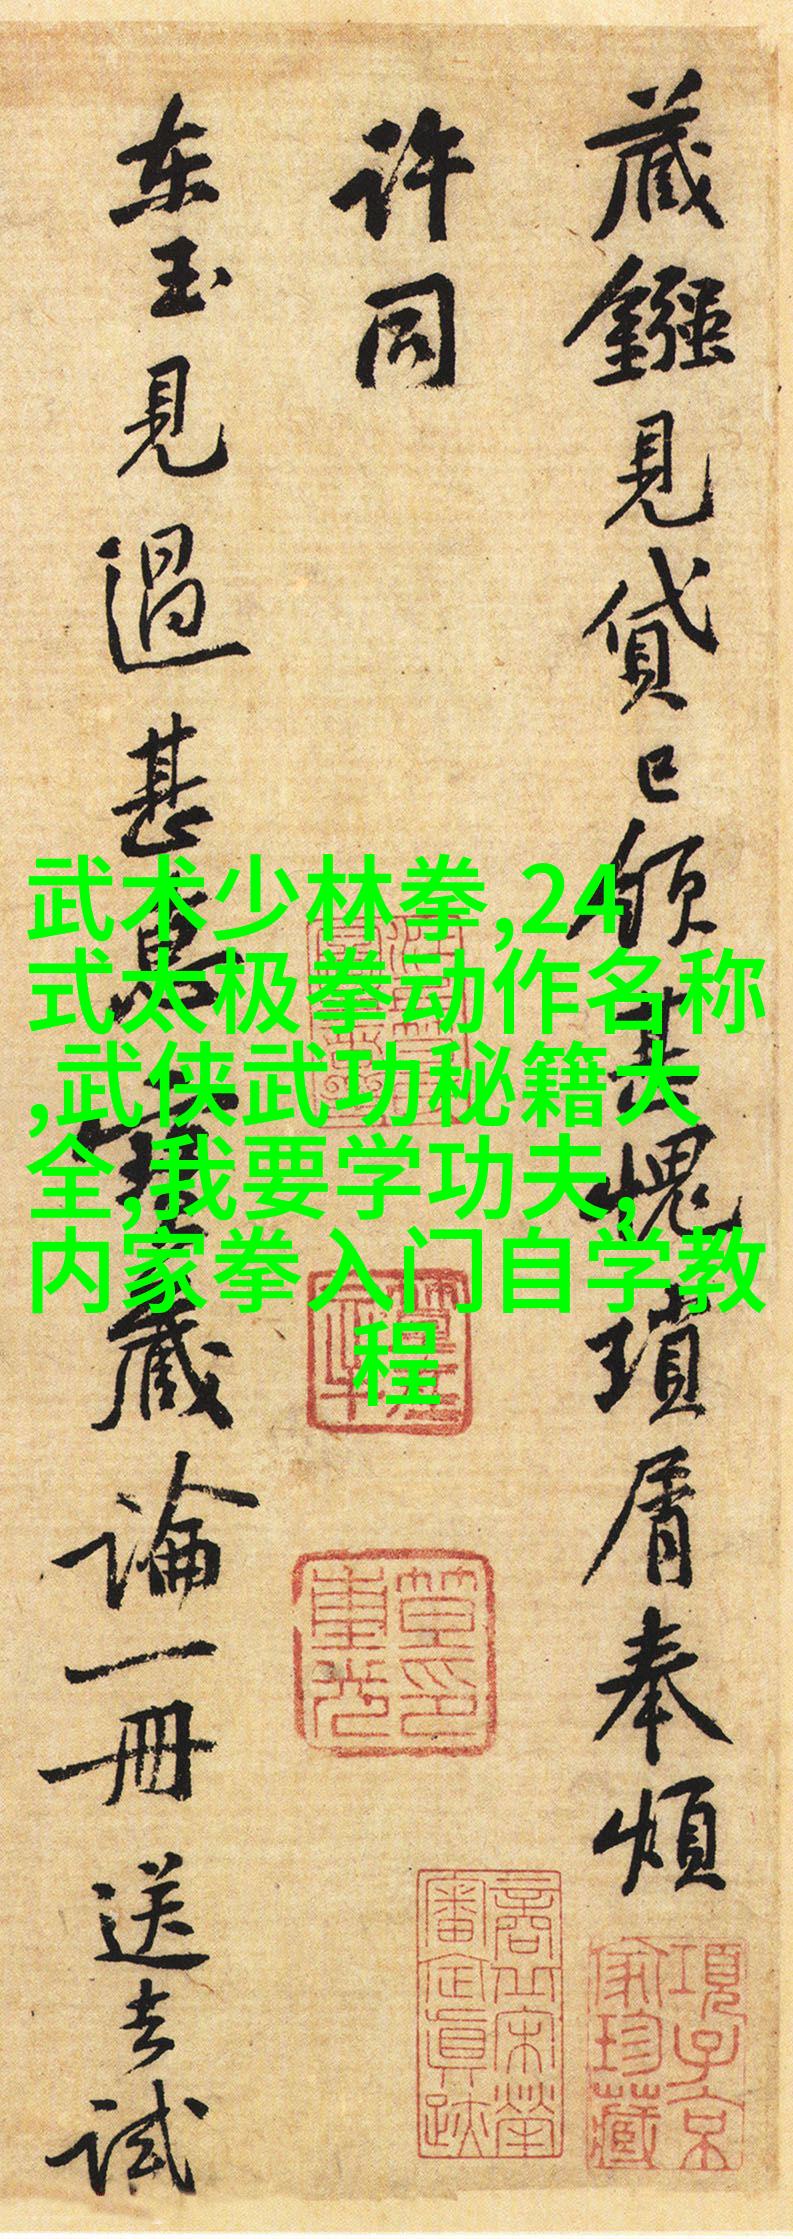 藏鏹見貸已領甚愧瑣屑奉煩
许同
东玉見過甚慰寶藏論一冊送去試
武术少林拳,24
式太极拳动作名称
,武侠武功秘籍大
全,我要学功夫,
内家拳入门自学教
程
項子京
家珍藏